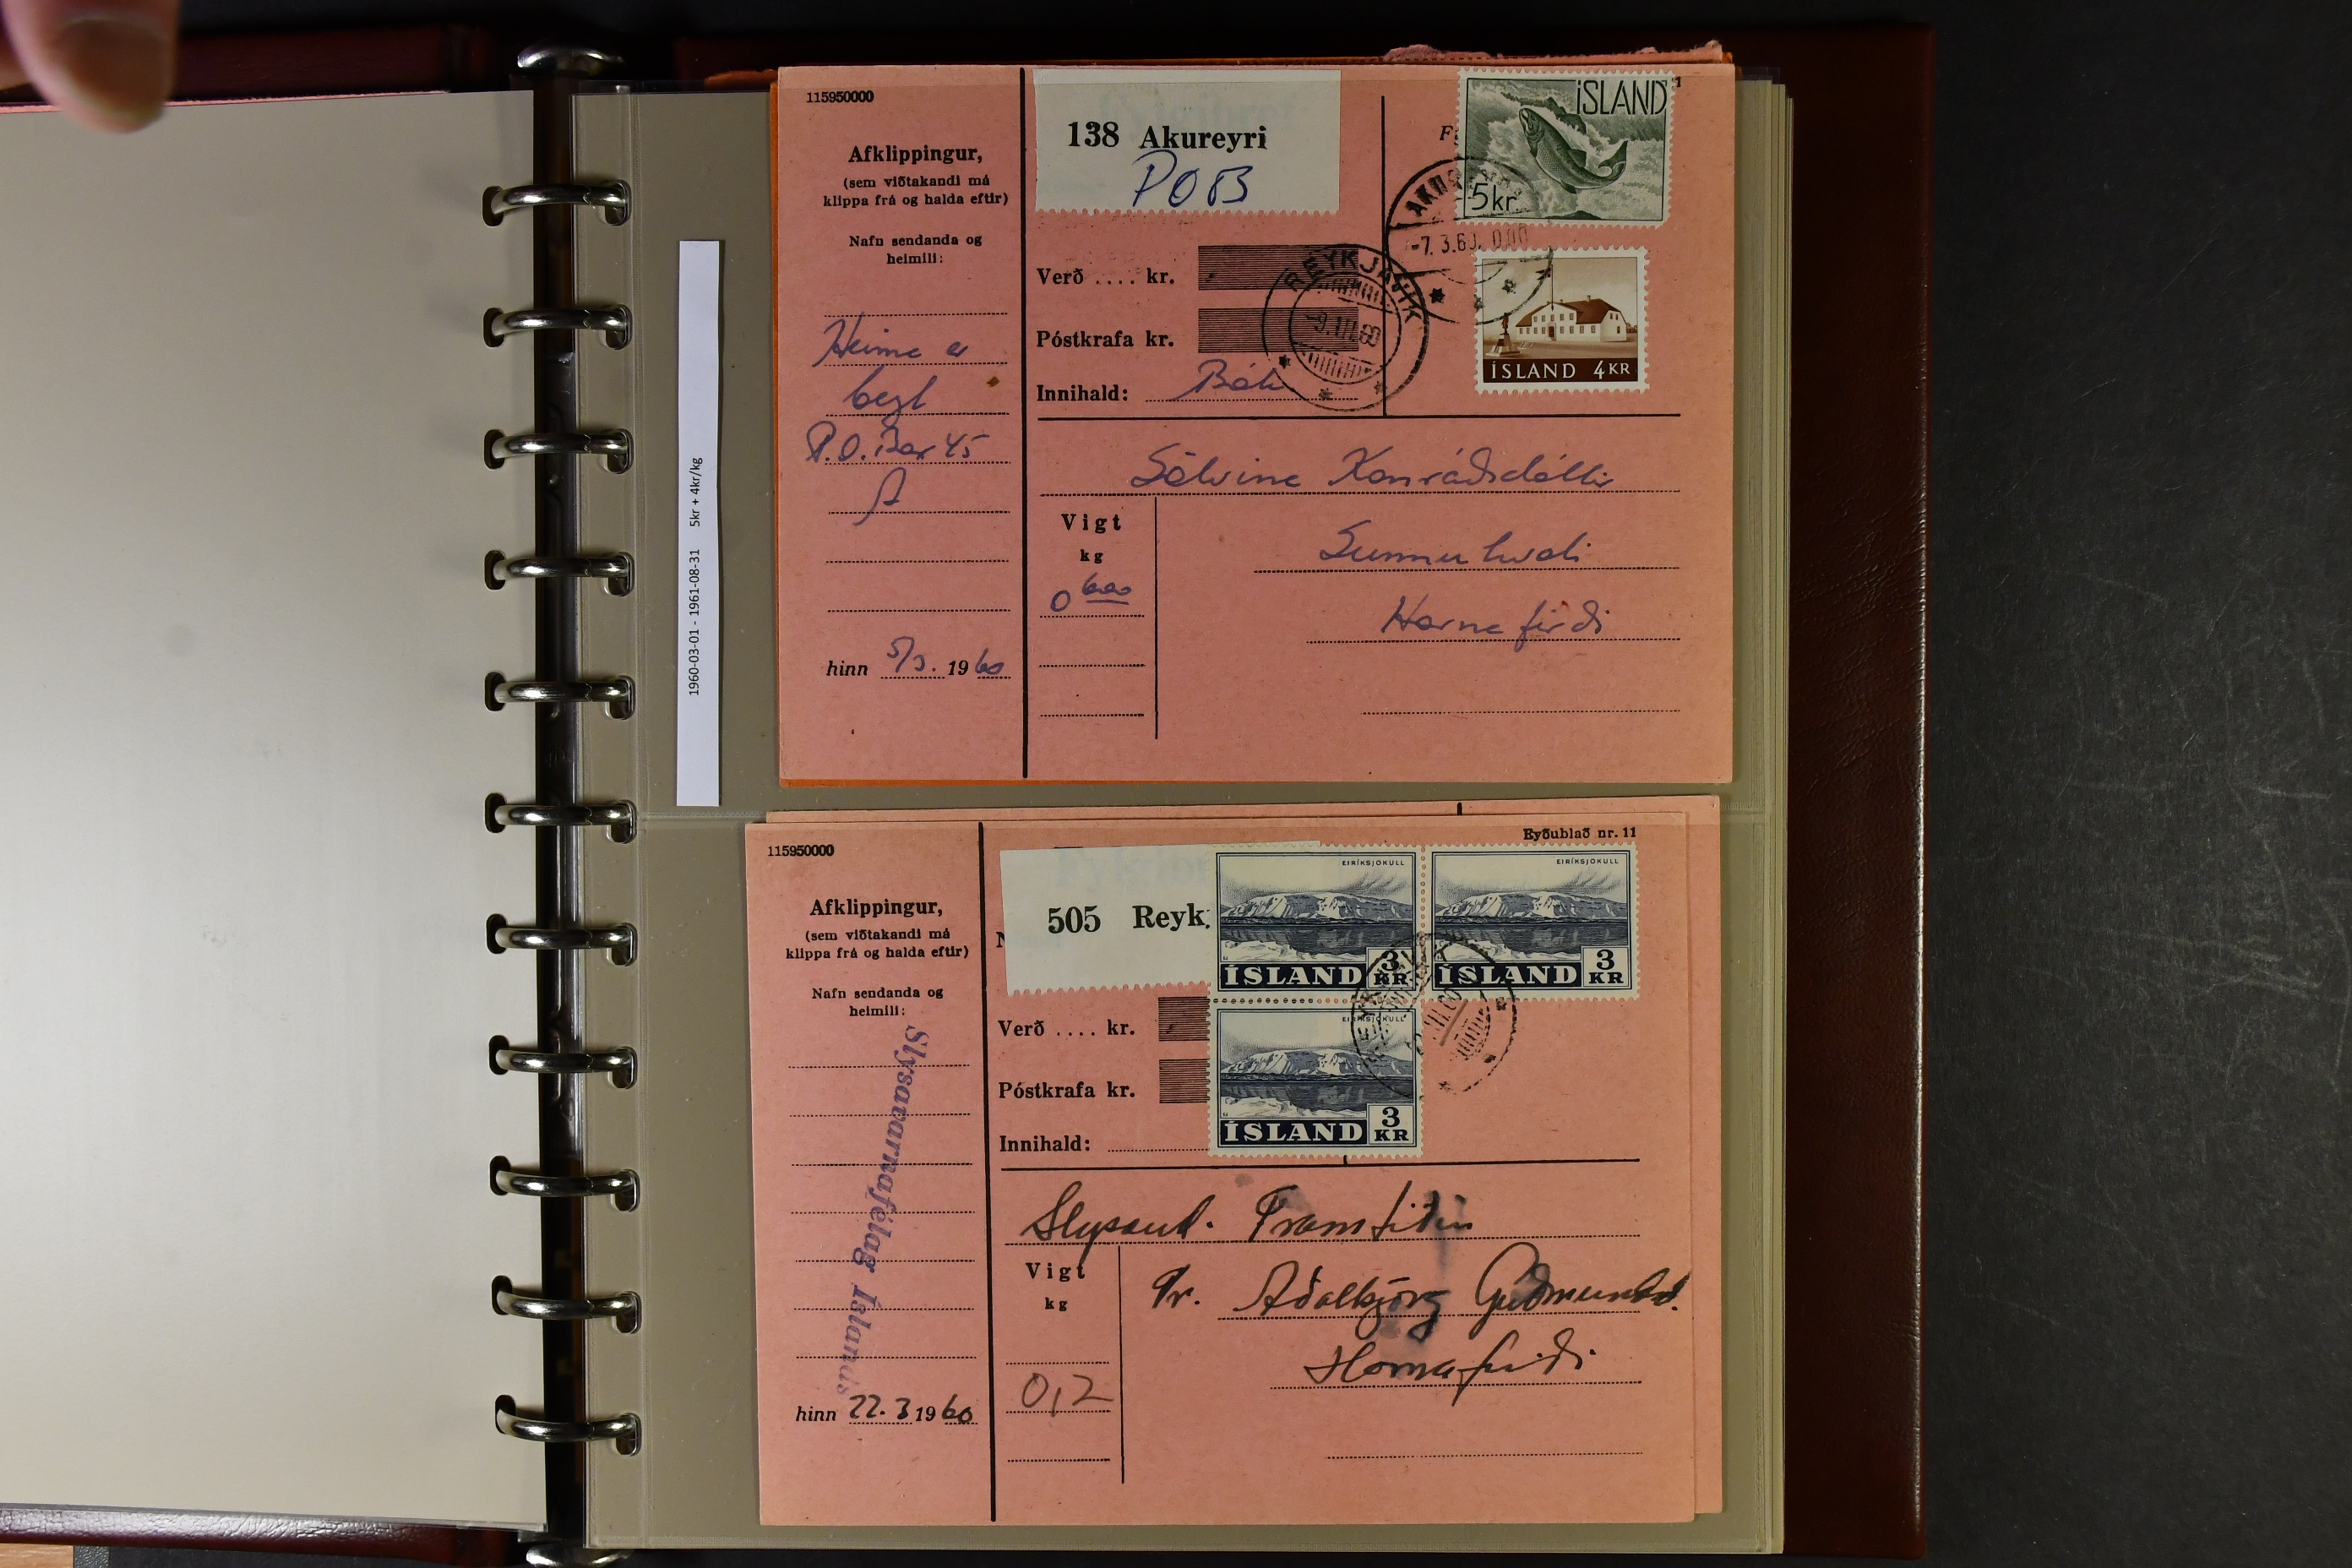 1960-03-01 - 1961-08-31 5kr + 4kr/kg
115950000
Afklippingur,
(sem viðtakandi má
klippa frá og halda eftir)
Nafn sendanda og
heimili:
P.O. Box 45
A
hinn 5/3. 1960
138 Akureyri
POB
Verð .... kr.
Póstkrafa kr.
Innihald:
REYKJAVIK
-9.III.60
-7.3.60.
ÍSLAND
5kr
ÍSLAND 4KR
Konráðsdóttir
Vigt
kg
0 600
Sunnuhvoli
Hornafirði
Eyðublað nr. 11
115950000
Afklippingur,
(sem viðtakandi má
klippa frá og halda eftir)
Nafn sendanda og
heimili:
Slysavarnafélag Íslands
hinn 22.3 1960
505 Reyk
Verð .... kr.
Póstkrafa kr.
Innihald:
EIRÍKSJÖKULL
ÍSLAND 3 KR
EIRÍKSJÖKULL
ÍSLAND 3 KR
EIRÍKSJÖKULL
ÍSLAND 3 KR
Framtíðin
Vigt
kg
0,2
Aðalbjörg Guðmundsd.
Hornafirði